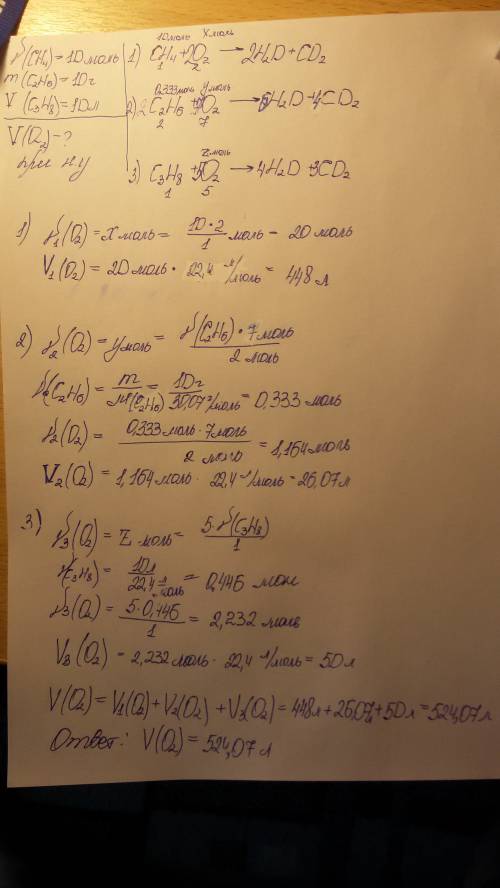 ν(CH₄)=10моль
m(C₂H₆)=10г
V(C₃H₈)=10л
V(O₂)-?
при н.у
10моль Xмоль
1) CH₄+2O₂ → 2H₂O+CO₂
1 2
0,333моль yмоль
2) 2C₂H₆+7O₂ → 6H₂O+4CO₂
2 7
Zмоль
3) C₃H₈+5O₂ → 4H₂O+3CO₂
1 5
1) ν₁(O₂)=Xмоль= 10·2/1 моль = 20 моль
V₁(O₂)=20моль· 22,4 л/моль = 448 л
2) ν₂(O₂)=yмоль= ν(C₂H₆)·7моль/2 моль
ν(C₂H₆)= m/M(C₂H₆) = 10г/30,07г/моль = 0,333 моль
ν₂(O₂)= 0,333моль·7моль/2 моль = 1,164моль
V₂(O₂)=1,164моль· 22,4 л/моль = 26,07л
3) ν₃(O₂)=Z моль= 5·ν(C₃H₈)/1
ν(C₃H₈)= 10л/22,4 л/моль = 0,446 моль
ν₃(O₂)= 5·0,446/1 = 2,232 моль
V₃(O₂) = 2,232моль· 22,4 л/моль = 50л
V(O₂)=V₁(O₂)+V₂(O₂)+V₃(O₂)=448л+26,07л+50л=524,07л
Ответ: V(O₂)=524,07л